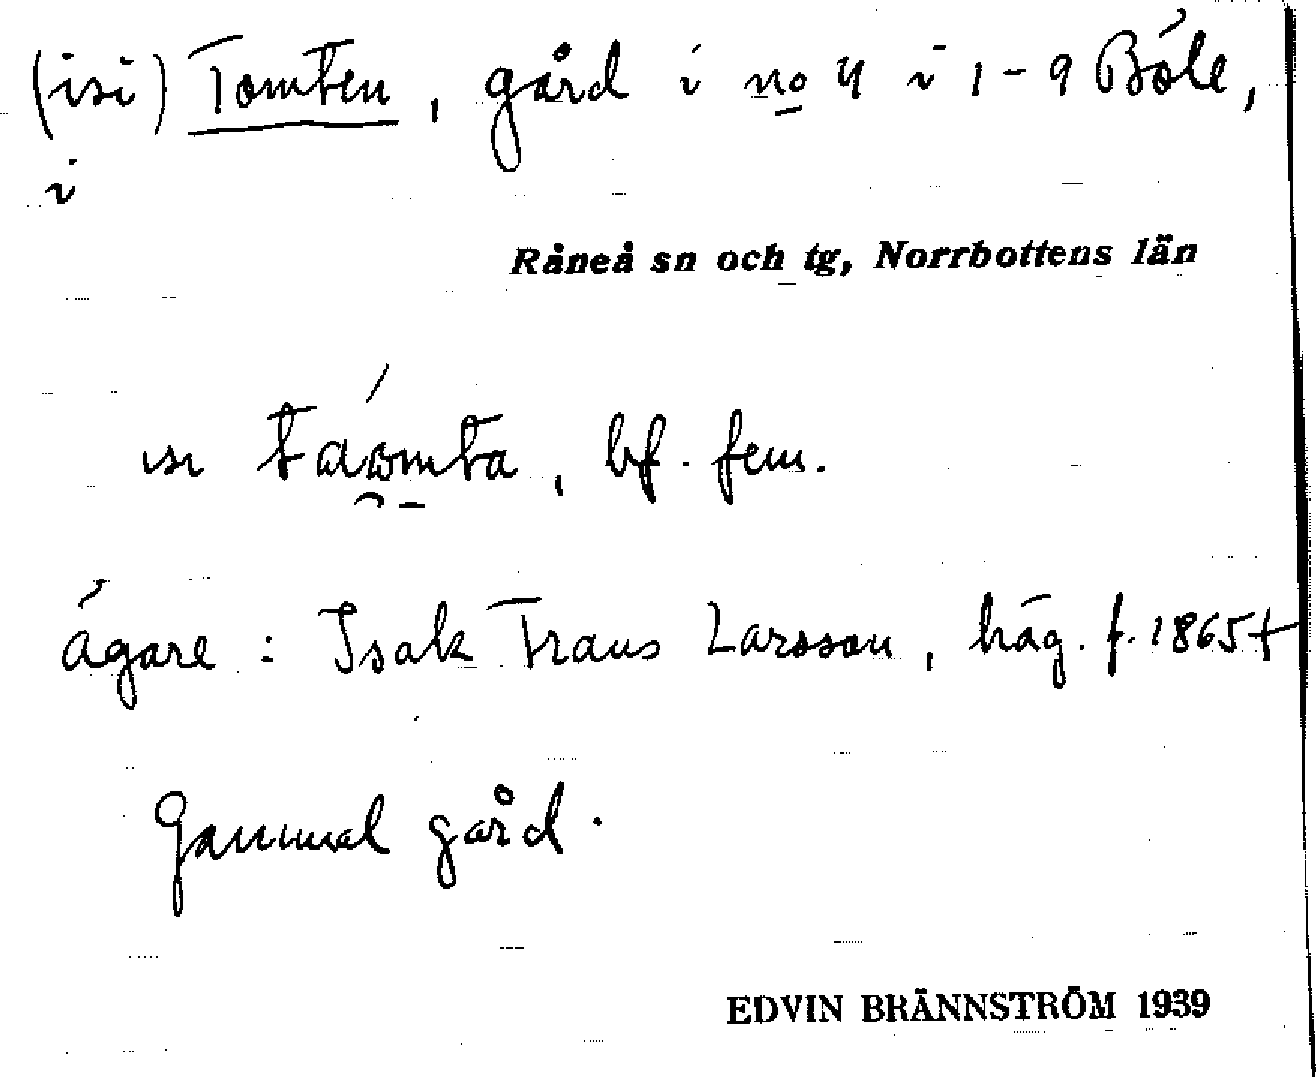 (isi) Tomten, gård i no 4 i 1-9 Böle,
i
Råneå sn och tg, Norrbottens län
isi taomta, bf. fem.
ägare: Isak Frans Larsson, häg. f. 1865+
Gammal gård.
EDVIN BRÄNNSTRÖM 1939